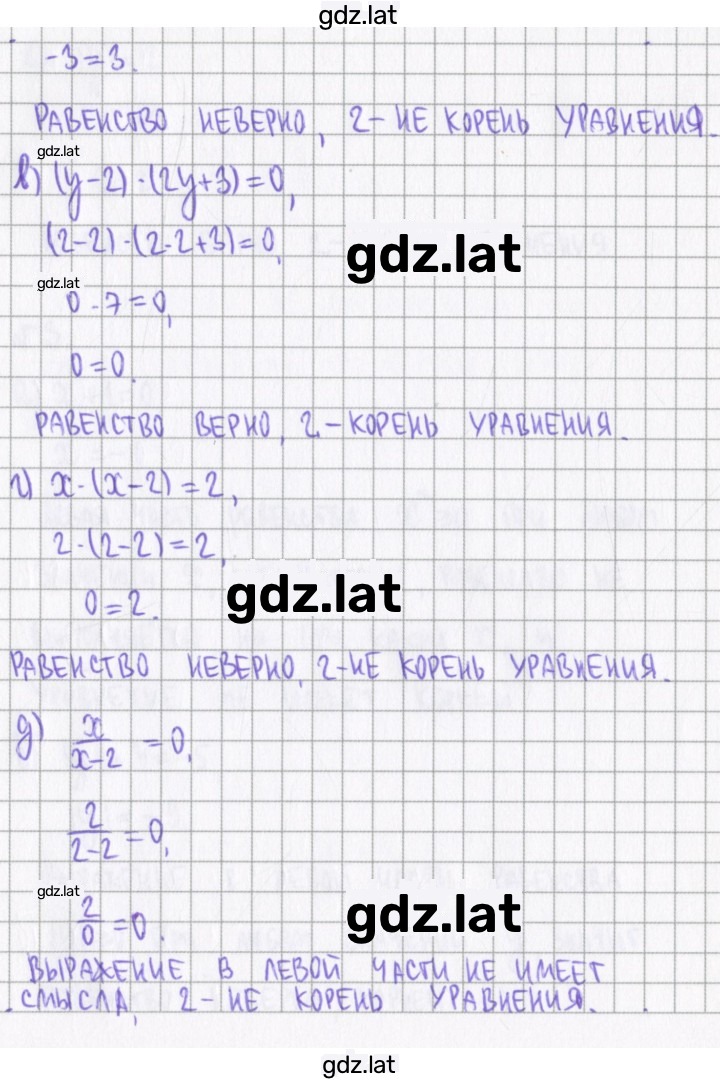 gdz.lat
-3=3.
РАВЕНСТВО НЕВЕРНО, 2-НЕ КОРЕНЬ УРАВНЕНИЯ.
gdz.lat
в) (y-2)·(2y+3)=0,
(2-2)·(2·2+3)=0,
gdz.lat
gdz.lat
0·7=0,
0=0.
РАВЕНСТВО ВЕРНО, 2-КОРЕНЬ УРАВНЕНИЯ.
г) x·(x-2)=2,
2·(2-2)=2,
gdz.lat
0=2.
РАВЕНСТВО НЕВЕРНО, 2-НЕ КОРЕНЬ УРАВНЕНИЯ.
д) x/(x-2) =0,
2/(2-2) =0,
gdz.lat
gdz.lat
2/0 =0.
ВЫРАЖЕНИЕ В ЛЕВОЙ ЧАСТИ НЕ ИМЕЕТ
СМЫСЛА, 2-НЕ КОРЕНЬ УРАВНЕНИЯ.
gdz.lat